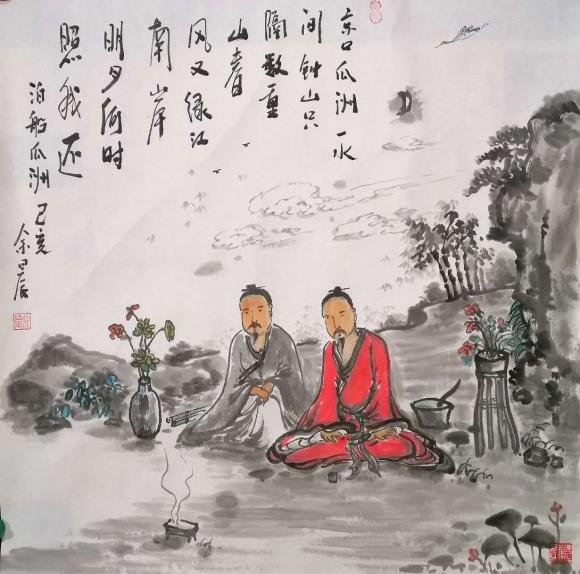 京口瓜洲一水
间钟山只
隔数重
山春
风又绿江
南岸
明月何时
照我还
泊船瓜洲 己亥
余